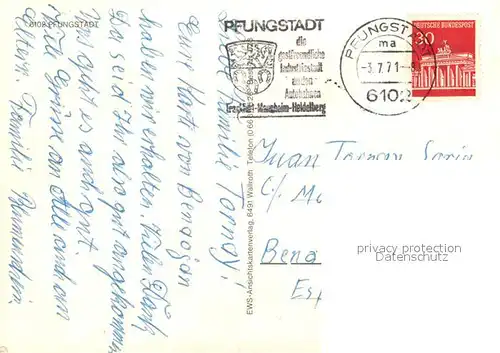 6102 PFUNGSTADT
PFUNGSTADT
die
gastfreundliche
Industriestadt
an den
Autobahnen
Frankfurt-Mannheim-Heidelberg
PFUNGST
ma
-3.7.71-
6102
DEUTSCHE BUNDESPOST
30
Liebe Familie Torroy!
Eure Karte von Benaojan
haben wir erhalten. Vielen Dank
Ihr seid Ihr also gut angekommen
uns geht es auch gut.
Viele Grüße an Alle und an
Eltern. Familie
EWS-Ansichtskartenverlag, 6491 Wallroth, Telefon (0 66
Juan
C/
Bena
Esp
privacy protection
watermark